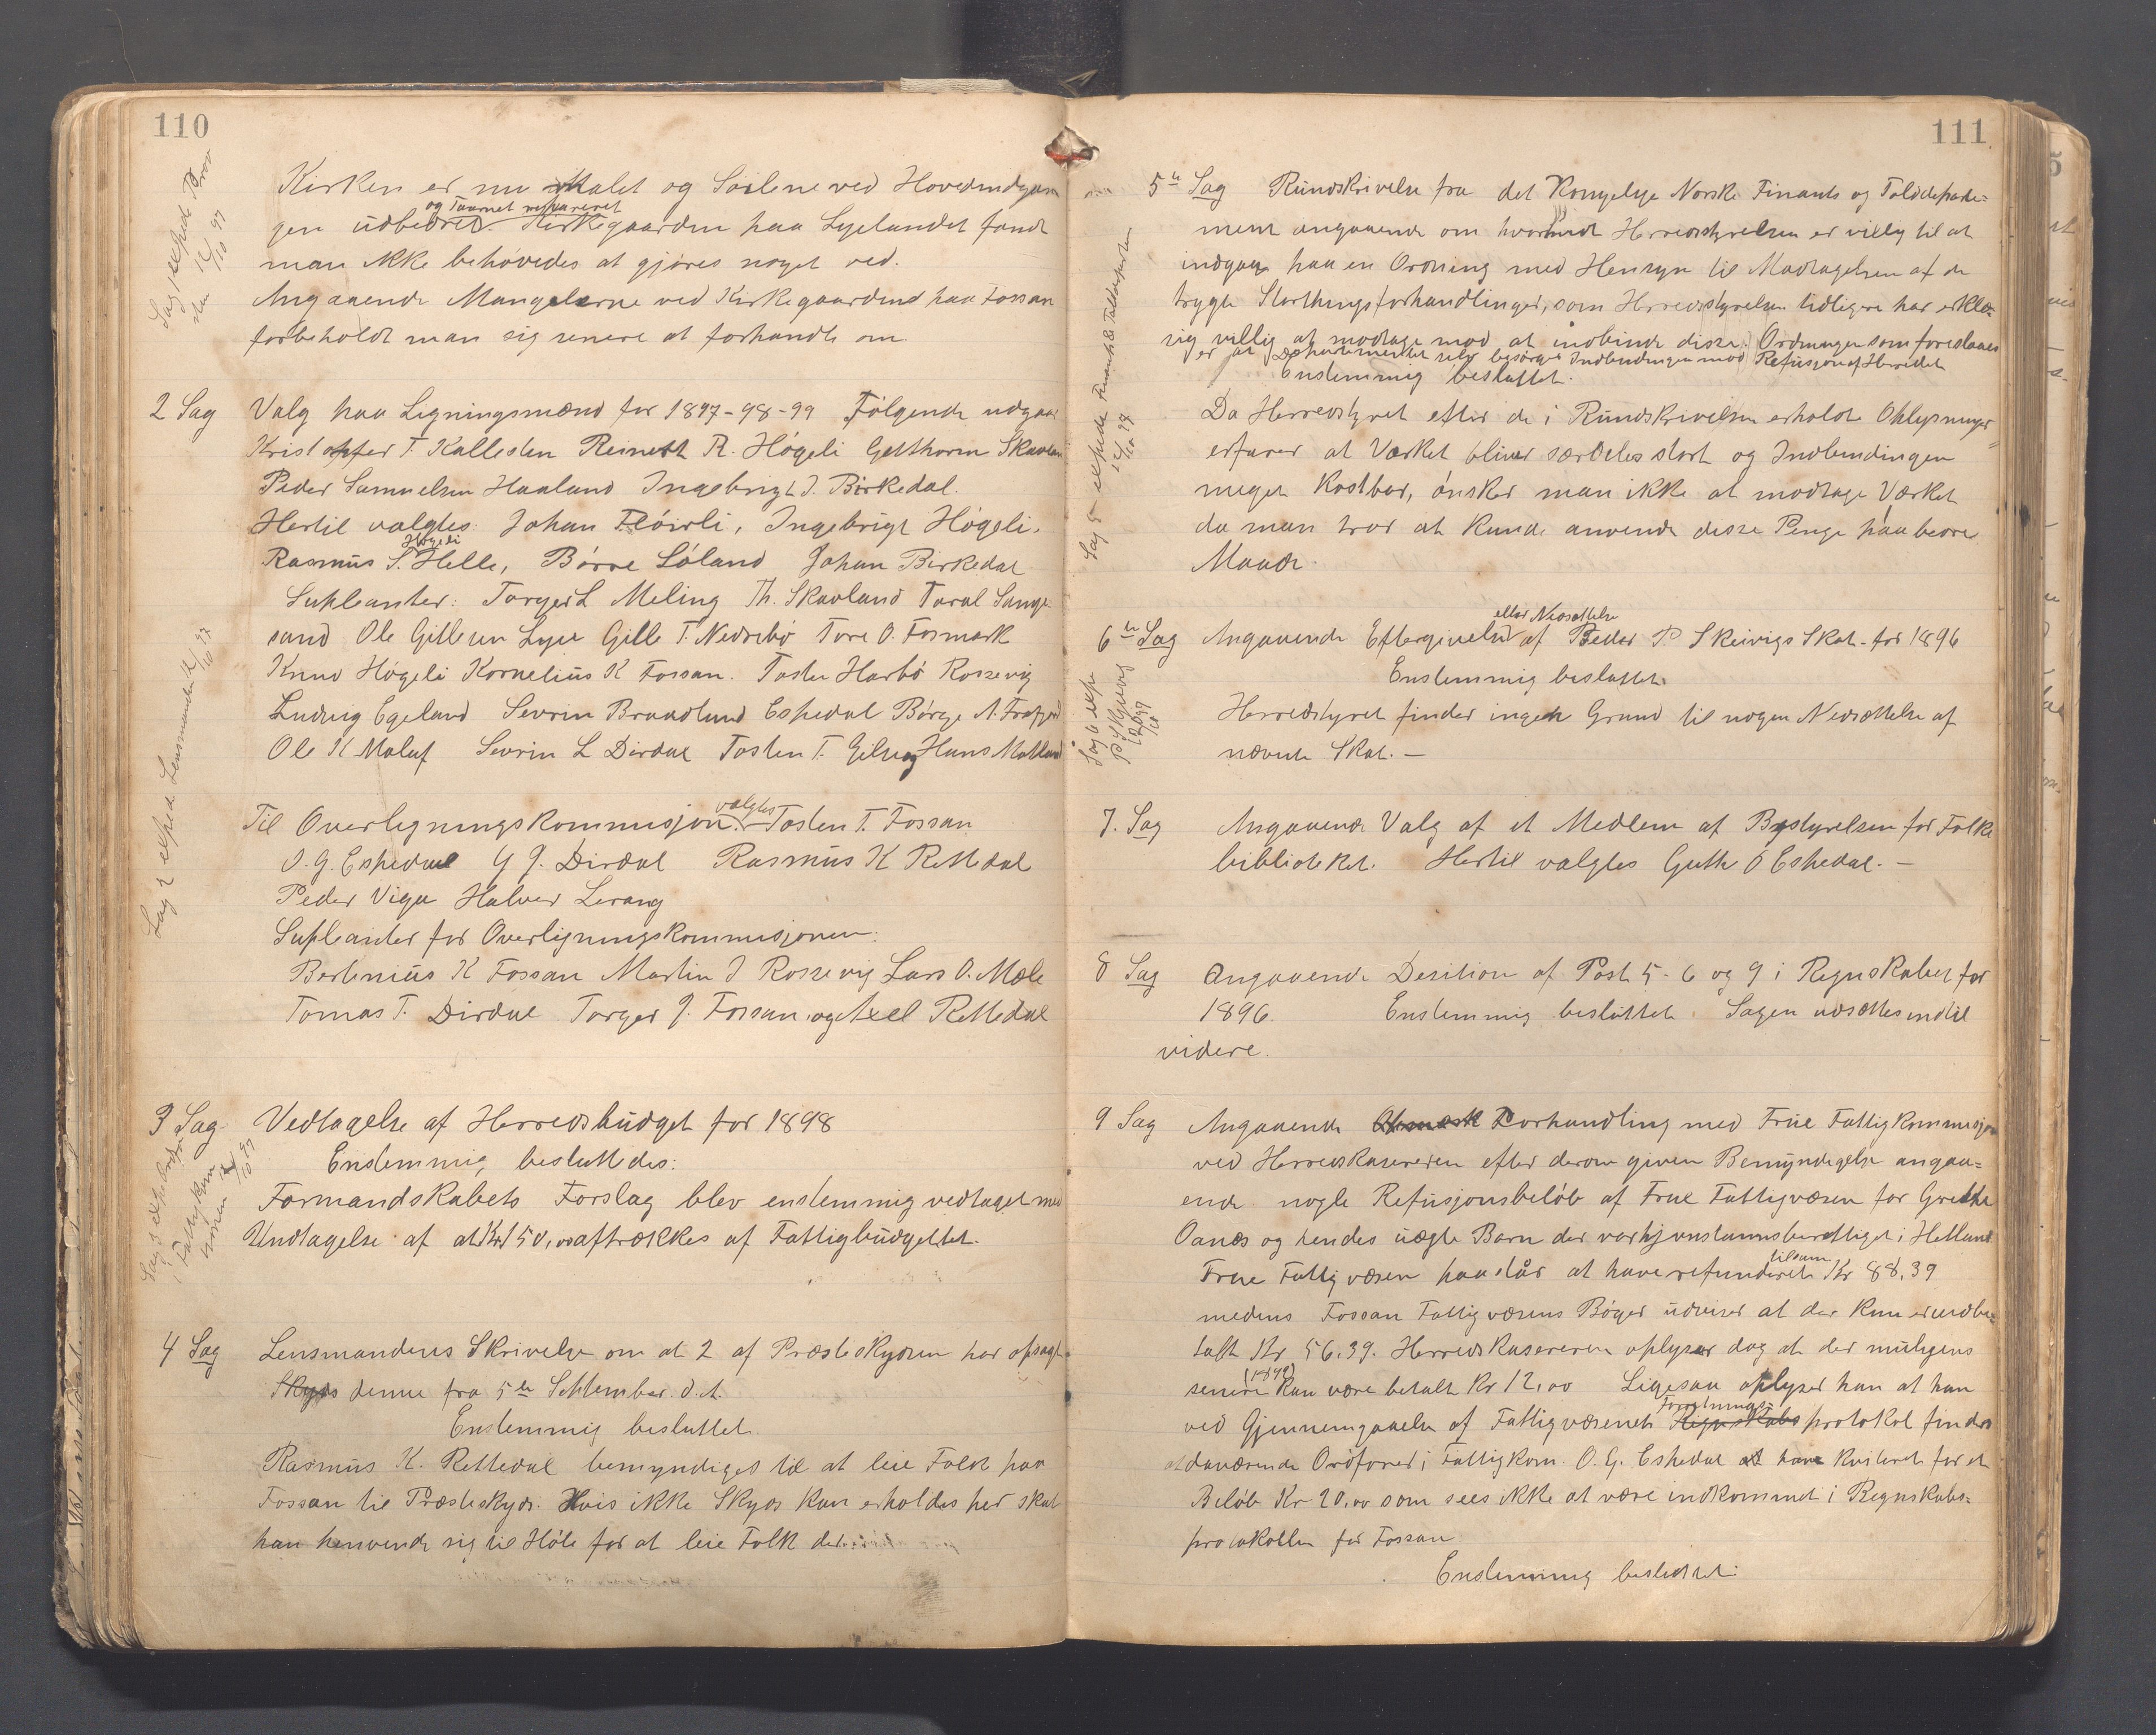 110
Kirken er nu malet og Söilene ved Hovedindgan
gen udbedret og Taarnet repareret. Kirkegaarden paa Lyselandet fandt
man ikke behövedes at gjöres noget ved.
Angaaende Manglerne ved Kirkegaarden paa Fossan
forbeholdt man sig senere at forhandle om.
Sag 1 exped Prov
den 14/10 97
2 Sag Valg paa Ligningsmænd for 1897-98-99 Fölgende udgaar
Kristoffer T. Kallesten Reinert R. Högeli Gutthorm Skavlan
Peder Samuelsen Haaland Ingebrigt J. Birkedal.
Hertil valgtes: Johan Flöirli, Ingebrigt Högeli,
Rasmus S. Högeli Helle, Börre Löland Johan Birkedal
Supleanter: Torger L Meling Th. Skavland Taral Songe
sand Ole Gillesen Lyse Gille T. Nedrebö Tore O. Fosmark
Knud Högeli Kornelius K Fossan. Tosten Harbö Rossevig
Ludvig Egeland Sevrin Brandlund Espedal Börge A. Frafjord
Ole K Maluf Sevrin L Dirdal Tosten T. Gilje og Hans Mattland
Til Overligningskommisjon valgtes Tosten T. Fossan
O. G. Espedal G J. Dirdal Rasmus K Rettedal
Peder Viga Halver Lerang
Supleanter for Overligningskommisjonen:
Bertinius K Fossan Martin J Rossevig Lars O. Mæle
Tomas T. Dirdal Torger J. Fossan, og Axel Rettedal
Sag 2 exped. Lensmanden 14/10 97
3 Sag Vedtagelse af Herredsbudget for 1898
Enstemmig besluttedes:
Formandskabets Forslag blev enstemmig vedtaget med
Undtagelse af at Kr 150,00 aftrækkes af Fattigbudgettet.
Sag 3 exp.
i Fattigkom
10 97
4 Sag Lensmandens Skrivelse om at 2 af Præsteskydsen har opsagt
Skyds denne fra 5te September d. A.
Enstemmig besluttet
Rasmus K. Rettedal bemyndiges til at leie Folk paa
Fossan til Præsteskyds. Hvis ikke Skyds kan erholdes her skal
han henvende sig til Höle for at leie Folk der.
111
5te Sag Rundskrivelse fra det Kongelige Norske Finants og Tolddeparte=
ment angaaende om hvorvidt Herredstyrelsen er villig til at
indgaa paa en Ordning med Hensyn til Modtagelsen af de
trygte Storthingsforhandlinger, som Herredstyrelsen tidligere har erklæ
sig villig at modtage mod at indbinde disse. Ordningen som foreslaaes
er at Departementet selv besörger Indbindingen mod Refusjon af Herredet
Enstemmig besluttet.
Da Herredstyret efter de i Rundskrivelsen erholdte Oplysninger
erfarer at Værket bliver særdeles stort og Indbindingen
meget Kostbar, önsker man ikke at modtage Værket
da man tror at Kunde anvende disse Penge paa bedre
Maade.
Sag 5 exped Finants & Tolddeparten
14/10 97
6te Sag Angaaende Eftergivelse eller Nedsættelse af Peder P. Skeivigs Skat for 1896
Enstemmig besluttet.
Herredstyret finder ingen Grund til nogen Nedsættelse af
nævnte Skat. —
Sag 6 expe
7. Sag Angaaende Valg af et Medlem af Bestyrelsen for Folke
biblioteket. Hertil valgtes Guth O Espedal. —
8 Sag Angaaende Desition af Post 5 - 6 og 9 i Regnskabet for
1896. Enstemmig besluttet. Sagen udsættes indtil
videre.
9 Sag Angaaende Forhandling med Frue Fattigkommisjon
ved Herredskasereren efter derom given Bemyndigelse angaa=
ende nogle Refusjonsbelöb af Frue Fattigvæsen for Grethe
Oanes og hendes uægte Barn der var hjemstavnsberettiget i Hetland
Frue Fattigvæsen paastår at have refunderet tilsam Kr 88,39
medens Fossan Fattigvæsens Böger udviser at der kun er indbe
talt Kr 56.39. Herredskasereren oplyser dog at der muligens
senere (1892) kan være betalt Kr 12,00 Ligesaa oplyser han at han
ved Gjennemgaaelse af Fattigvæsenets Regnskabs Forretnings protokol finder
at daværende Ordförer i Fattigkom. O. G. Espedal at have kviteret for et
Belöb Kr 20,00 som sees ikke at være indkommet i Regnskabs=
protokollen for Fossan
Enstemmig besluttet: